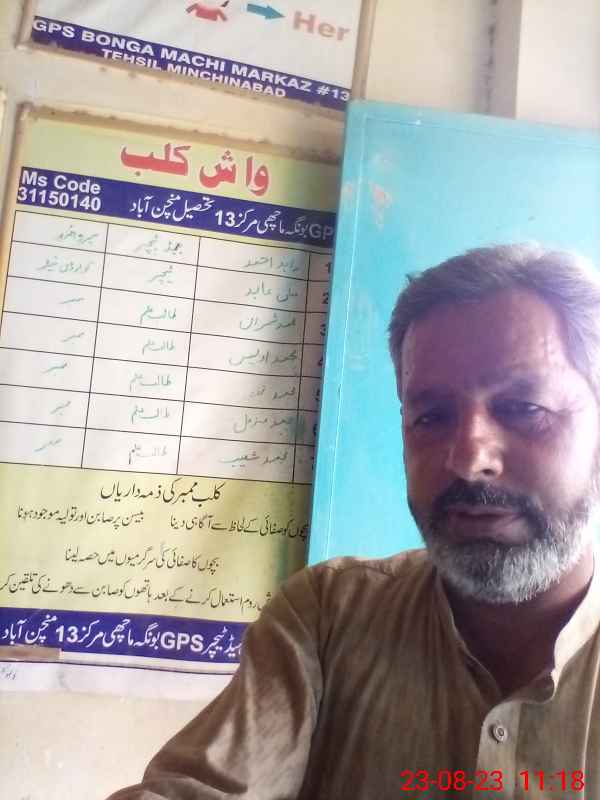 Her
GPS BONGA MACHI MARKAZ #13
TEHSIL MINCHINABAD
واش کلب
Ms Code
31150140
GPS بونگہ ماچھی مرکز 13 تحصیل منچن آباد
1 زاہد احمد ہیڈ ٹیچر سپروائزر
2 علی عابد ٹیچر
3 طالب علم ممبر
4 محمد اویس طالب علم ممبر
5 محمد طالب علم ممبر
6 محمد مزمل طالب علم ممبر
7 محمد شعیب طالب علم ممبر
کلب ممبر کی ذمہ داریاں
بچوں کو صفائی کے لحاظ سے آگاہی دینا بیسن پر صابن اور تولیہ موجود ہونا
بچوں کا صفائی کی سرگرمیوں میں حصہ لینا
روم استعمال کرنے کے بعد ہاتھوں کو صابن سے دھونے کی تلقین کر
ہیڈ ٹیچر GPS بونگہ ماچھی مرکز 13 منچن آباد
23-08-23 11:18